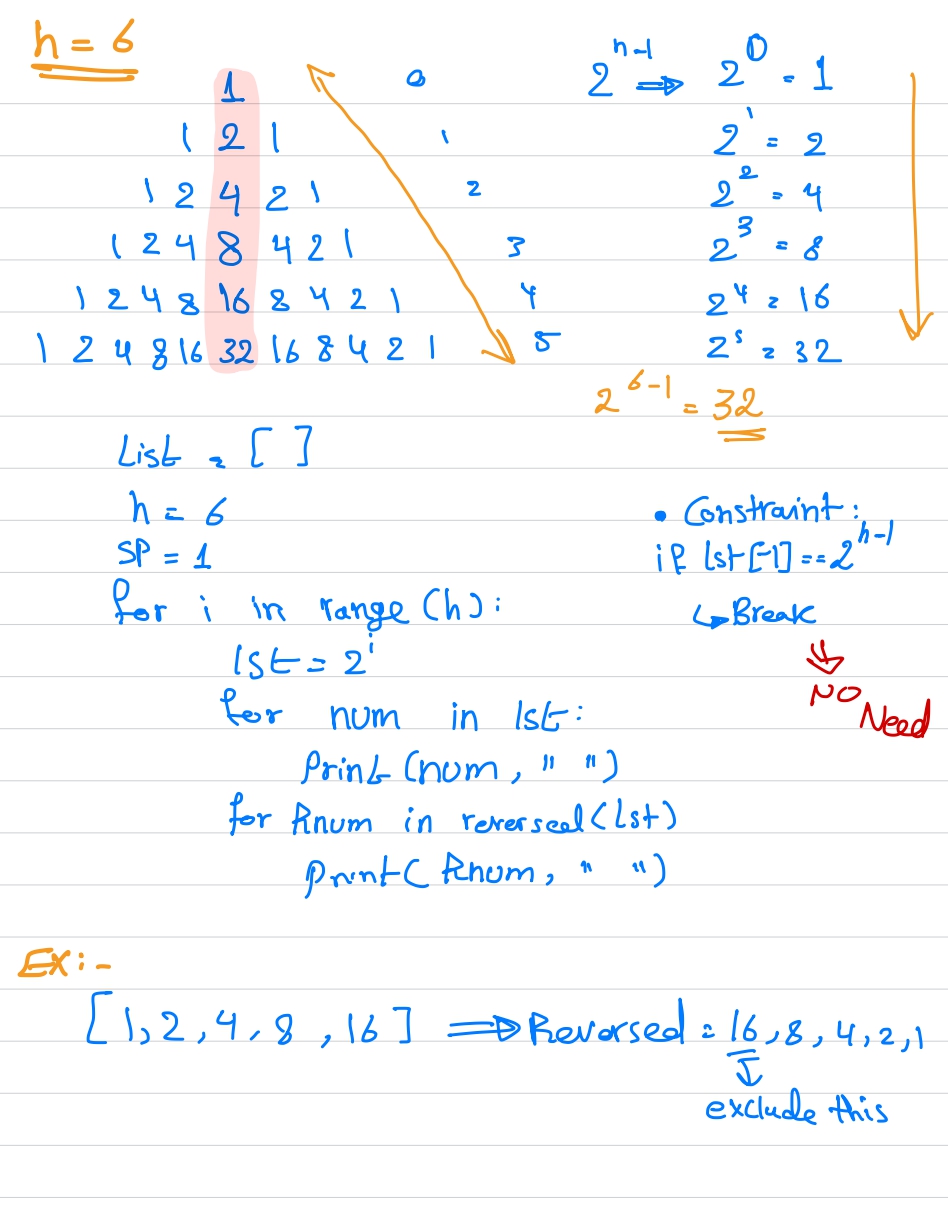 h = 6
1 0 2^(n-1) ⇒ 2^0 = 1
1 2 1 1 2^1 = 2
1 2 4 2 1 2 2^2 = 4
1 2 4 8 4 2 1 3 2^3 = 8
1 2 4 8 16 8 4 2 1 4 2^4 = 16
1 2 4 8 16 32 16 8 4 2 1 5 2^5 = 32
2^(6-1) = 32
List = [ ]
h = 6
SP = 1
for i in range (h):
lst = 2^i
for num in lst:
Print (num, " ")
for Rnum in reversed (lst)
print( Rnum, " ")
• Constraint:
if lst[-1] == 2^(h-1)
↳ Break
⇓
NO Need
Ex:-
[1, 2, 4, 8, 16] ⇒ Reversed = 16, 8, 4, 2, 1
exclude this